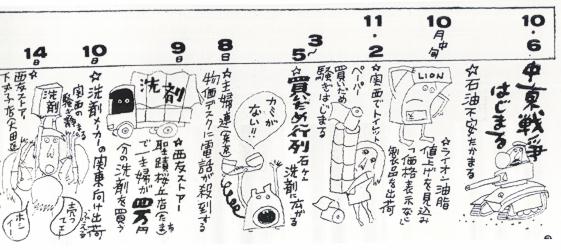 10・6
中東戦争
はじまる
☆石油不安たかまる
10月中旬
☆ライオン油脂
値上げを見込み
「価格表示なし」
製品を出荷
LION
11・2
☆関西でトイレット
ペーパー
買いだめ
騒ぎはじまる
3〜5
☆買いだめ行列
石ケン
洗剤に広がる
8日
☆主婦連・東京
物価デスクに電話が殺到する
カミが
ない!!
9日
☆西友ストアー
聖蹟桜ヶ丘店(たま)
で主婦が四万円
分の洗剤を買う
洗剤
10日
☆洗剤メーカーの関東向け出荷
関西の
騒ぎ静
14日
西友ストアー
洗剤
売って
ホシイ